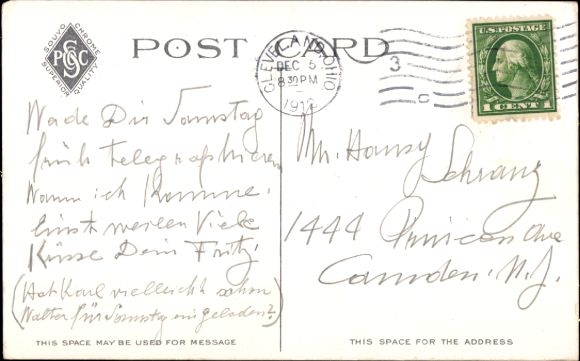 SOUVO CHROME
PSCC
SUPERIOR QUALITY
POST CARD
CLEVELAND, OHIO
DEC 5
830 PM
3
C
U.S. POSTAGE
1 CENT 1
Wede Dir Samstag
früh telegraphieren
Wann ich komme.
Einstweilen Viele
Küsse Dein Fritz.
(Hat Karl vielleicht schon
Walter für Samstag eingeladen?)
Mr. Hansy
Schranz
1444 Ave
Camden. N.J.
THIS SPACE MAY BE USED FOR MESSAGE
THIS SPACE FOR THE ADDRESS